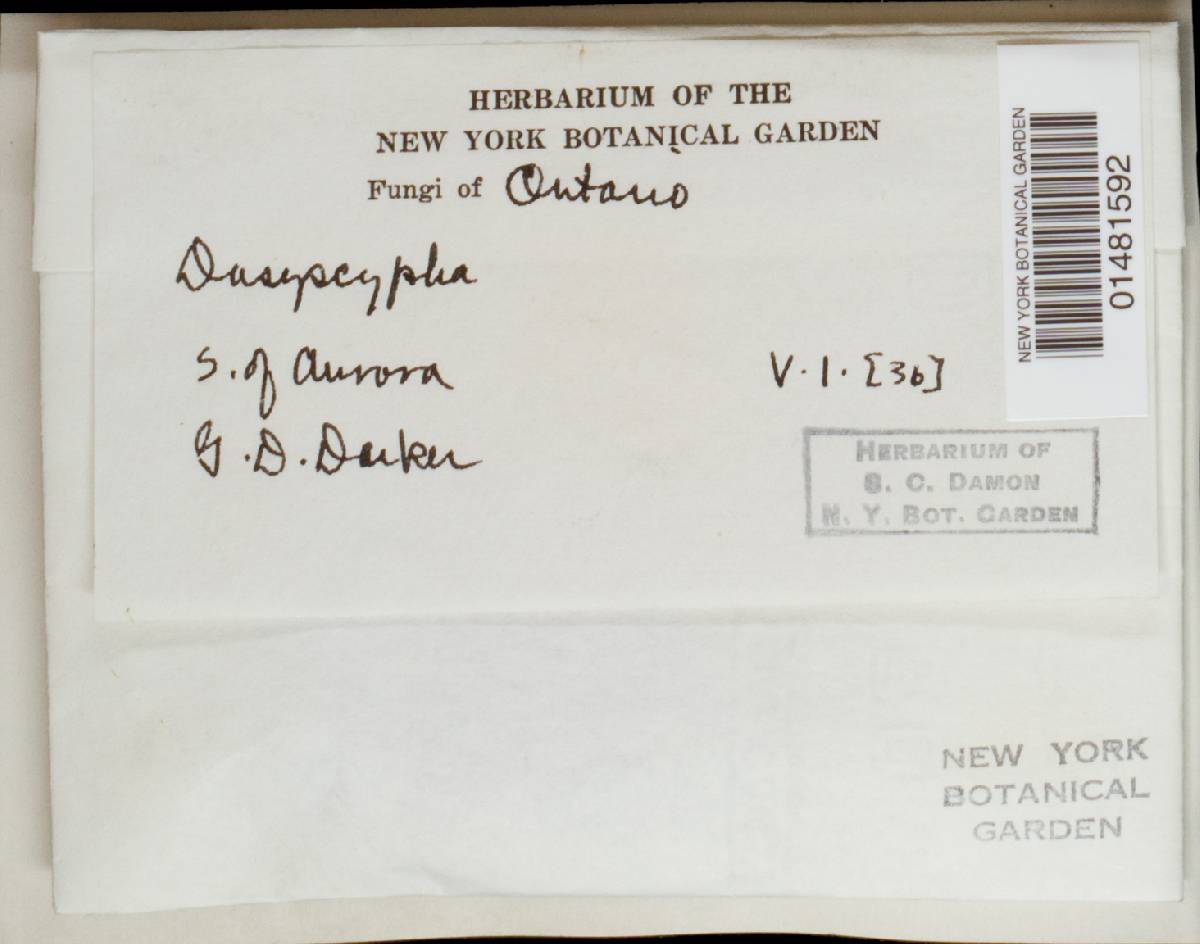 HERBARIUM OF THE
NEW YORK BOTANICAL GARDEN
Fungi of Ontario
Dasyscypha
S. of Aurora
V. 1. [36]
G. D. Darker
HERBARIUM OF
S. C. DAMON
N. Y. BOT. GARDEN
NEW YORK BOTANICAL GARDEN
01481592
NEW YORK
BOTANICAL
GARDEN